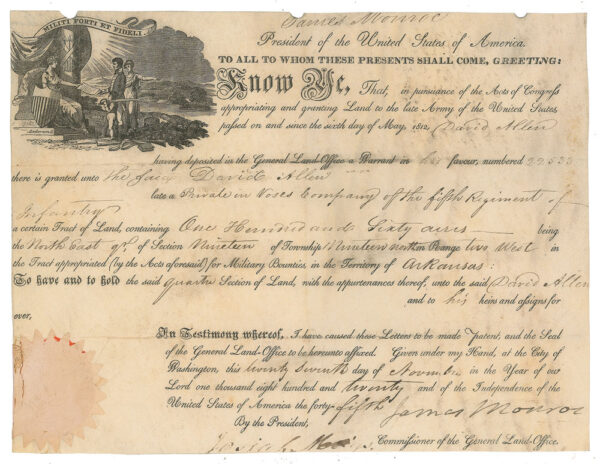 James Monroe
MILITI FORTI ET FIDELI.
President of the United States of America.
TO ALL TO WHOM THESE PRESENTS SHALL COME, GREETING:
Know Ye, That, in pursuance of the Acts of Congress
appropriating and granting Land to the late Army of the United States,
passed on and since the sixth day of May, 1812, David Allen
having deposited in the General Land-Office a Warrant in his favour, numbered 22533
there is granted unto the said David Allen
late a Private in Voses Company of the fifth Regiment of
Infantry
a certain Tract of Land, containing One Hundred and Sixty acres being
the North East qr of Section Nineteen of Township Nineteen north in Range two West in
the Tract appropriated (by the Acts aforesaid) for Military Bounties, in the Territory of Arkansas:
To have and to hold the said quarter Section of Land, with the appurtenances thereof, unto the said David Allen
and to his heirs and assigns for
ever,
In Testimony whereof, I have caused these Letters to be made Patent, and the Seal
of the General Land-Office to be hereunto affixed. Given under my Hand, at the City of
Washington, this twenty Seventh day of November in the Year of our
Lord one thousand eight hundred and twenty and of the Independence of the
United States of America the forty-fifth
James Monroe
By the President,
Josiah
Commissioner of the General Land-Office.